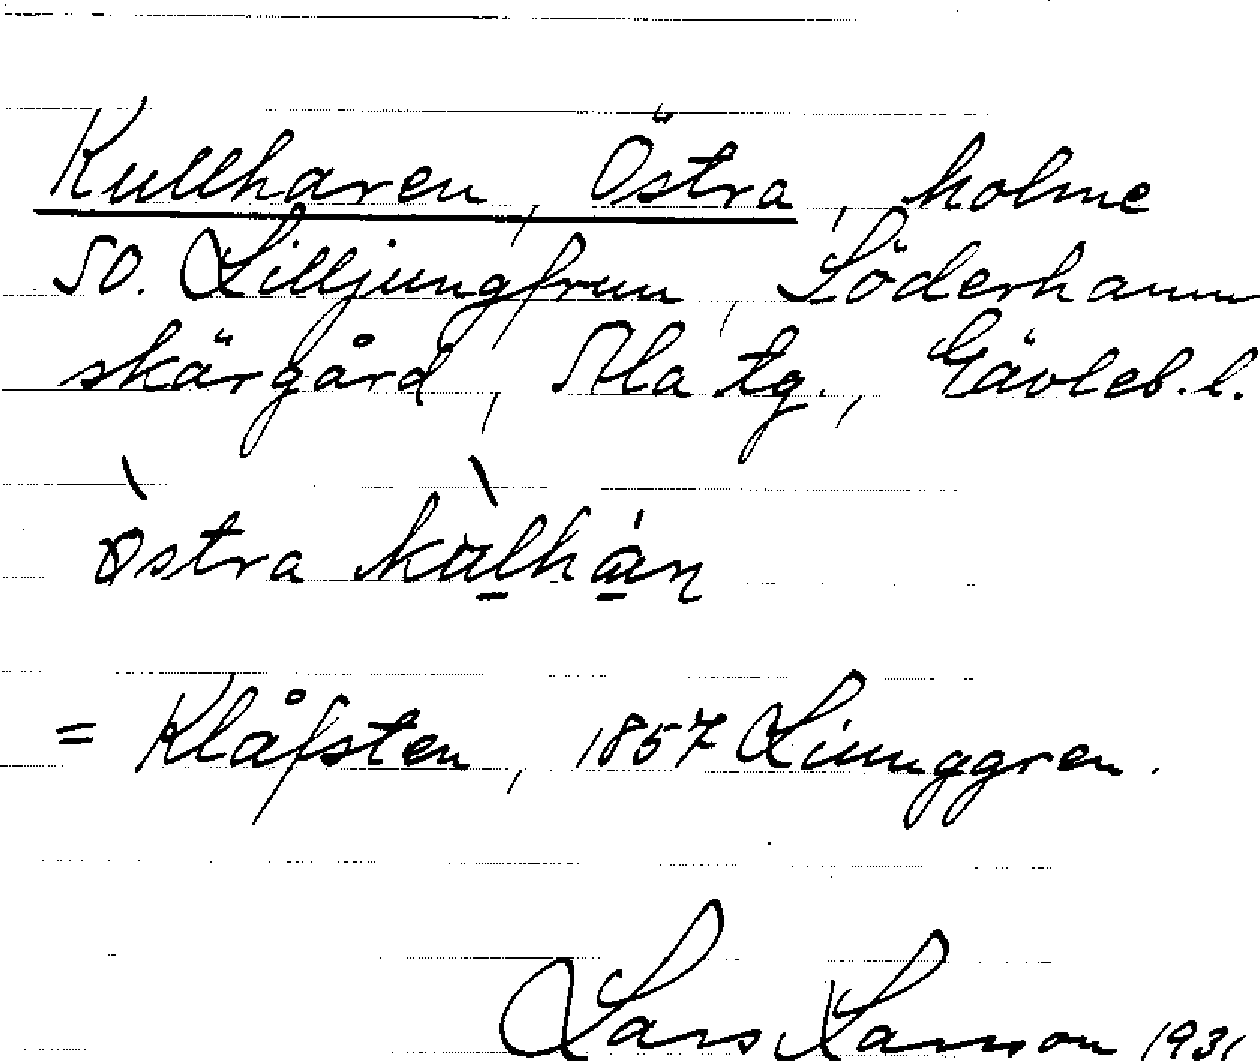 Kullharen, Östra, holme
SO. Lilljungfrun, Söderhamn
skärgård, Ala tg., Gävleb. l.
östra kùlhán
= Klåfsten, 1857 Liunggren.
Lars Larsson 1931